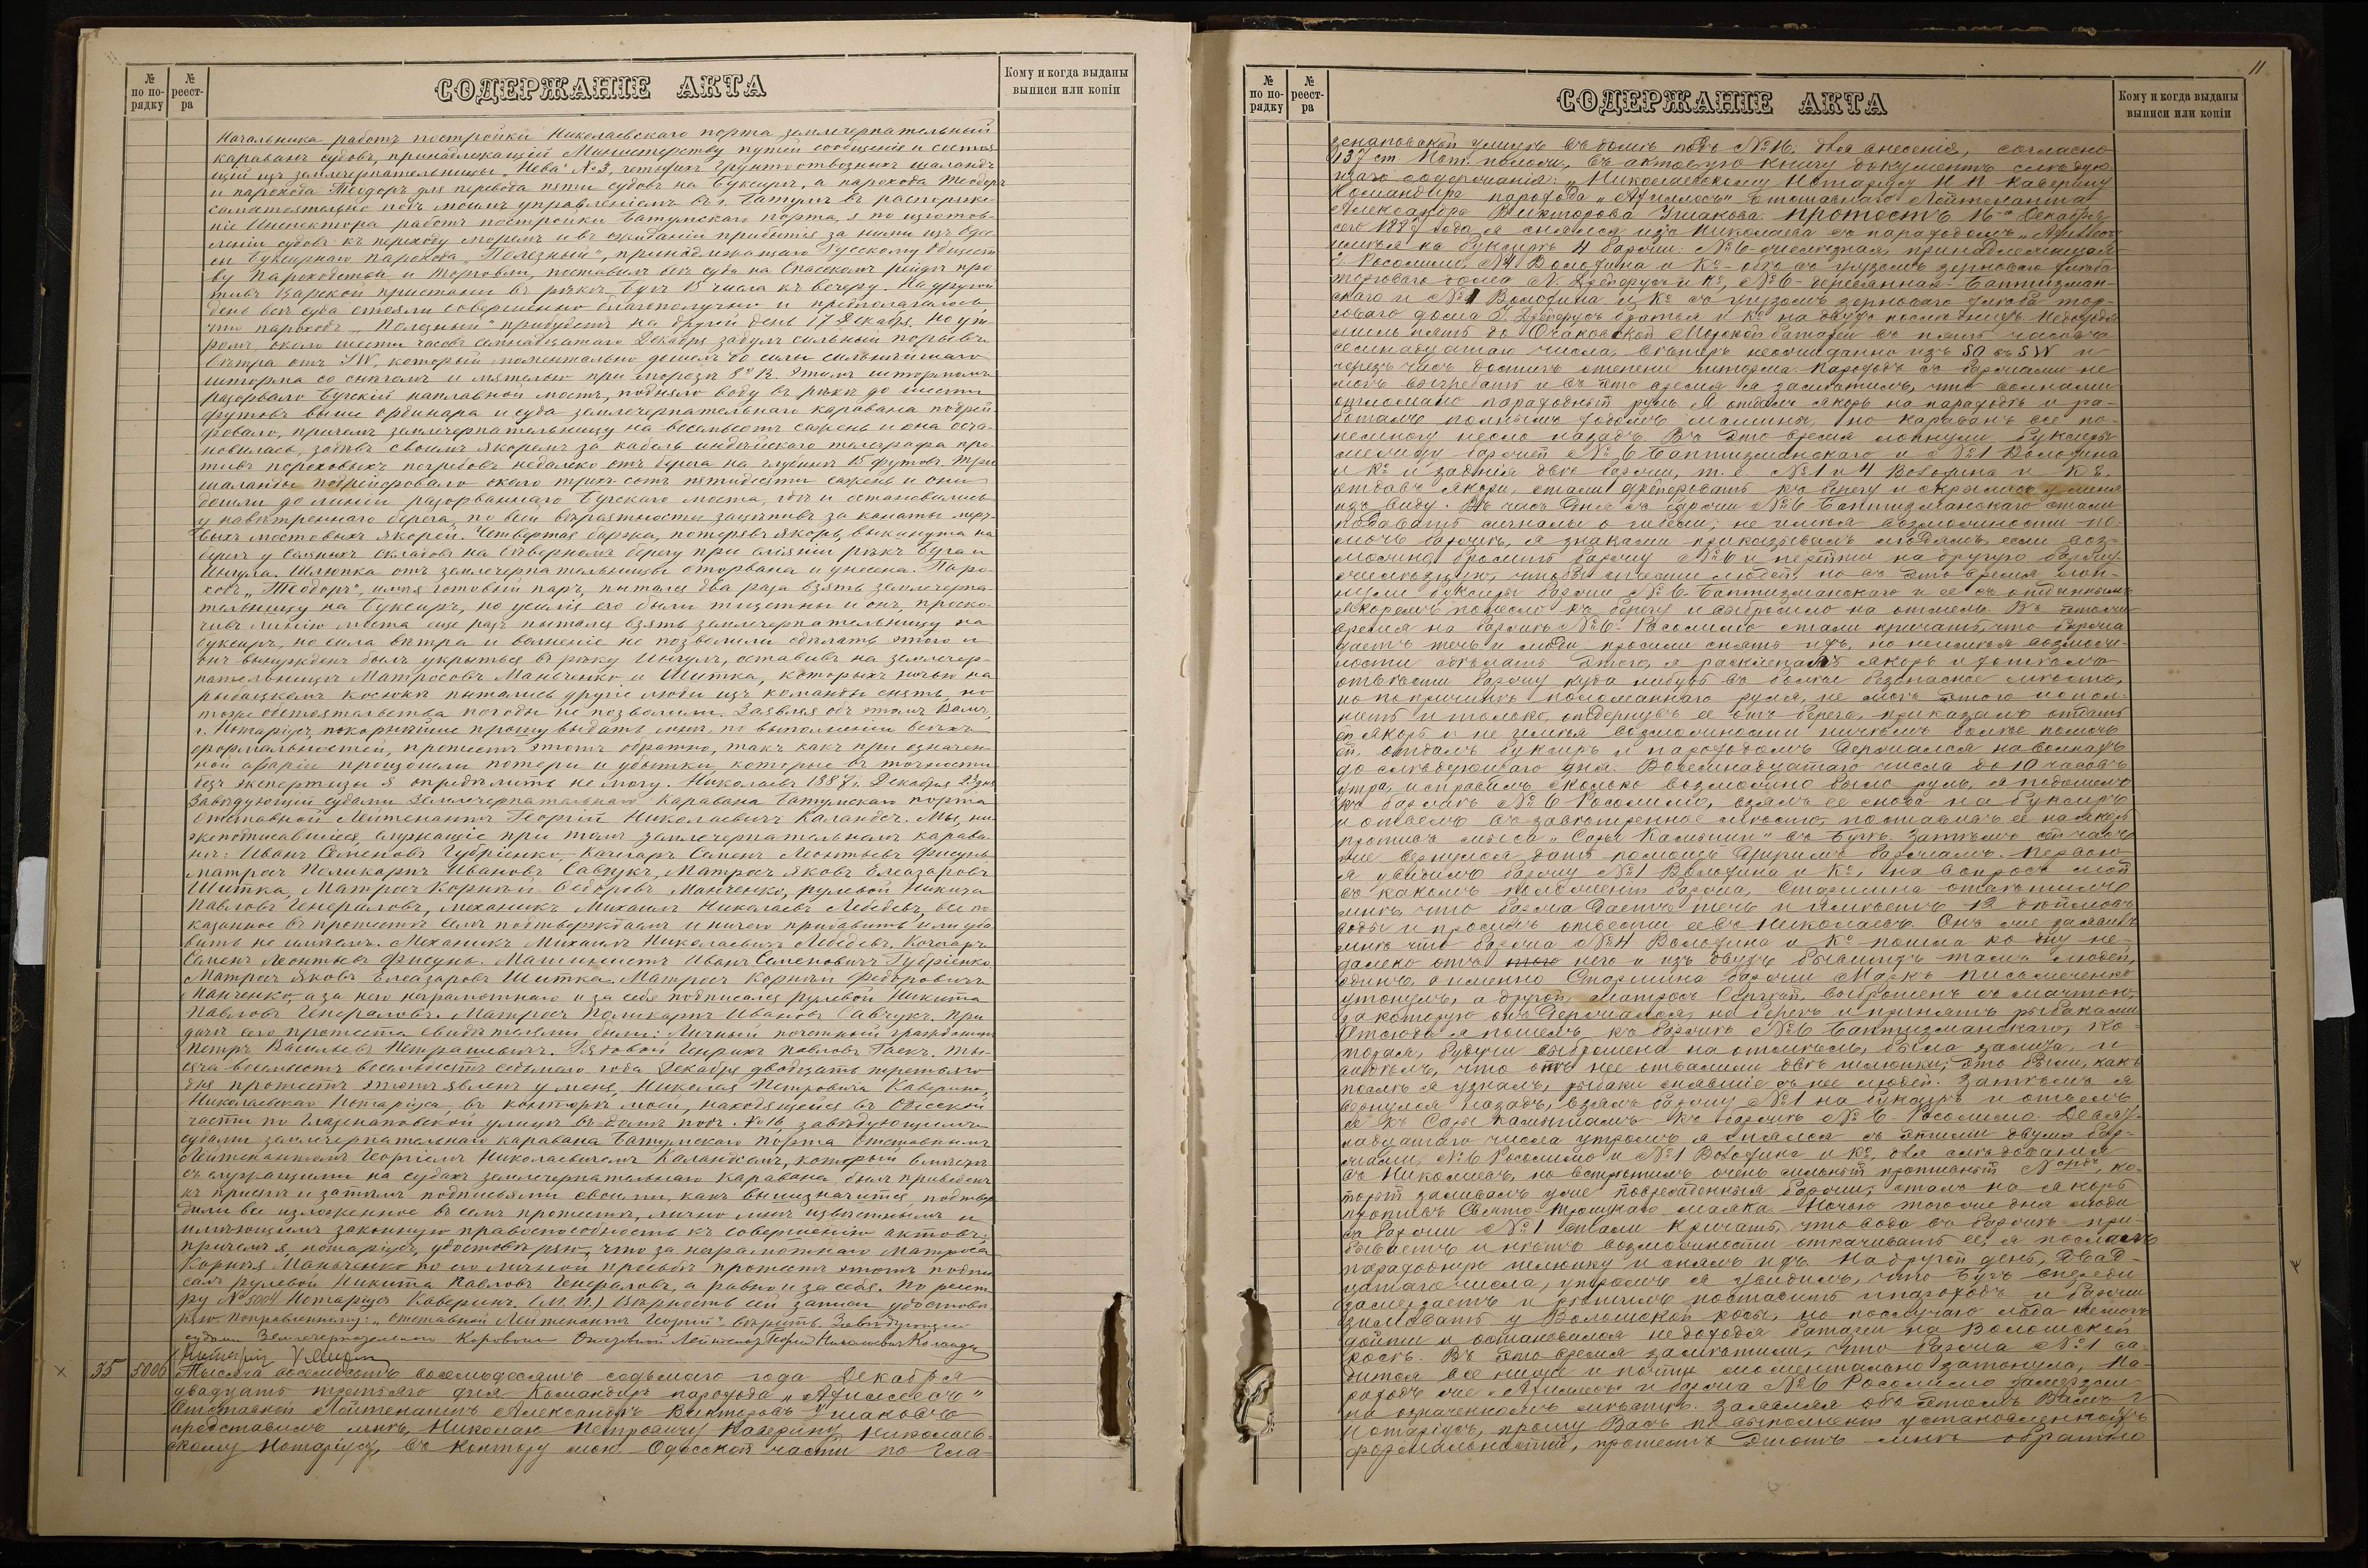 № по порядку
№ реестра
СОДЕРЖАНІЕ АКТА
Кому и когда выданы выписи или копіи
Начальника работъ постройки Николаевскаго порта землечерпательный
караванъ судовъ, принадлежащій Министерству путей сообщенія и состоя
щій изъ землечерпательницы „Нева" №3, четырехъ грунтоотвозныхъ шаландъ
и парохода Теодоръ для перевода пяти судовъ на буксирѣ, а парохода Теодоръ
самостоятельно подъ моимъ управленіемъ въ г. Батумъ въ распоряже-
ніе Инспектора работъ постройки Батумскаго порта, я по изготов-
леніи судовъ къ переходу моремъ и въ ожиданіи прибытія за ними изъ Одес
сы буксирнаго парохода „Полезный", принадлежащаго Русскому Общест
ву Пароходства и Торговли, поставилъ всѣ суда на Спасскомъ рейдѣ про
тивъ Царской пристани въ рѣкѣ Бугъ 15 числа къ вечеру. На другой
день всѣ суда стояли совершенно благополучно и предполагалось,
что пароходъ „Полезный" прибудетъ на другой день 17 Декабря. Но ут
ромъ, около шести часовъ семнадцатаго Декабря задулъ сильный порывъ
вѣтра отъ SW, который моментально дошелъ до силы сильнѣйшаго
шторма со снѣгомъ и мятелью при морозѣ 8° R. Этимъ штормомъ
разорвало Бугскій наплавной мостъ, подняло воду въ рѣкѣ до шести
футовъ выше ординара и суда землечерпательнаго каравана подрей-
фовало, причемъ землечерпательницу на восемьсотъ сажень и она оста-
новилась, задѣвъ своимъ якоремъ за кабель индѣйскаго телеграфа про-
тивъ пороховыхъ погребовъ недалеко отъ берега на глубинѣ 15 футовъ. Три
шаланды подрейфовало около трехъ сотъ пятидесяти сажень и они
дошли до линіи разорваннаго Бугскаго моста, гдѣ и остановились
у навѣтреннаго берега, по всей вѣроятности зацѣпивъ за канаты мерт-
выхъ мостовыхъ якорей. Четвертая баржа, потерявъ якорь, выкинута на
берегъ у Соляныхъ складовъ на Сѣверномъ берегу при сліяніи рѣкъ Буга и
Ингула. Шлюпка отъ землечерпательницы оторвана и унесена. Паро-
ходъ „Теодоръ", имѣя готовый паръ, пытался два раза взять землечерпа-
тельницу на буксиръ, но усилія его были тщетны и онъ, проско-
чивъ линію моста еще разъ пытался взять землечерпательницу на
буксиръ, но сила вѣтра и волненіе не позволили сдѣлать этого и
онъ вынужденъ былъ укрыться въ рѣку Ингулъ, оставивъ на землечер-
пательницѣ Матросовъ Маньченко и Шитка, которыхъ ночью на
рыбацкомъ каюкѣ пытались другіе люди изъ команды снять, но
тоже обстоятельства погоды не позволили. Заявляя объ этомъ Вамъ,
г. Нотаріусъ, покорнѣйше прошу выдать мнѣ, по выполненіи всѣхъ
формальностей, протестъ этотъ обратно, такъ какъ при означен-
ной аваріи произошли потери и убытки, которые въ точности
безъ экспертизы я опредѣлить не могу. Николаевъ 1887 г. Декабря 23 дня
Завѣдующій судами Землечерпательнаго Каравана Батумскаго порта
Отставной Лейтенантъ Георгій Николаевичъ Каландсъ. Мы, ни
жеподписавшіеся, служащіе при томъ землечерпательномъ карава-
нѣ: Иванъ Семеновъ Губріенко, Качегаръ Семенъ Леонтьевъ Фисунъ
Матросъ Поликарпъ Ивановъ Савчукъ, Матросъ Яковъ Елеазаровъ
Шитка, Матросъ Корнѣй Ѳедоровъ Манченко, рулевой Никита
Павловъ Генераловъ, механикъ Михаилъ Николаевъ Лебедевъ, все по-
казанное въ протестѣ семъ подтверждаемъ и ничего прибавить или уба
вить не имѣемъ. Механикъ Михаилъ Николаевичъ Лебедевъ. Кочегаръ
Семенъ Леонтьевъ Фисунъ. Машинистъ Иванъ Семеновичъ Губріенко.
Матросъ Яковъ Елеазаровъ Шитка. Матросъ Корнѣй Федоровичъ
Манченко, а за него неграмотнаго и за себя подписался рулевой Никита
Павловъ Генераловъ. Матросъ Поликарпъ Ивановъ Савчукъ. При
дачѣ сего протеста свидѣтелями были: Личный почетный гражданинъ
Петръ Васильевъ Петрашевичъ. Рядовой Генрихъ Павловъ Гаекъ. Ты-
сяча восемьсотъ восемьдесятъ седьмого года Декабря двадцать третьяго
дня протестъ этотъ явленъ у меня, Николая Петровича Каверина,
Николаевскаго Нотаріуса, въ конторѣ моей, находящейся въ Одесской
части по Глазенаповской улицѣ въ домѣ подъ №16, завѣдующимъ
судами землечерпательнаго каравана Батумскаго порта отставнымъ
Лейтенантомъ Георгіемъ Николаевичемъ Каландсомъ, который вмѣстѣ
съ служащими на судахъ землечерпательнаго каравана былъ приведенъ
къ присягѣ и затѣмъ подписьями своими, какъ вышезначится, подтвер
дили все изложенное въ семъ протестѣ, лично мнѣ извѣстнымъ и
имѣющимъ законную правоспособность къ совершенію актовъ;
причемъ я, нотаріусъ, удостовѣряю, что за неграмотнаго матроса
Корнѣя Маньченко по его личной просьбѣ протестъ этотъ подпи
салъ рулевой Никита Павловъ Генераловъ, а равно и за себя. По реест
ру №5004 Нотаріусъ Каверинъ. (М.П.) Вѣрность сей записи удостовѣ
ряю. Поправленному: „Отставной Лейтенантъ Георгій" вѣрить. Завѣдующій
судами Землечерпательнаго Каравана Отставной Лейтенантъ Георгій Николаевичъ Каландсъ
Нотаріусъ
35 5006 Тысяча восемьсотъ восемьдесятъ седьмого года Декабря
двадцать третьяго дня Командиръ парохода „Ахиллесъ"
Отставной Лейтенантъ Александръ Викторовъ Ушаковъ
представилъ мнѣ, Николаю Петровичу Каверину Николаев-
скому Нотаріусу, въ контору мою Одесской части по Гла-
11
№ по порядку
№ реестра
СОДЕРЖАНІЕ АКТА
Кому и когда выданы выписи или копіи
зенаповской улицѣ въ домѣ подъ №16. для внесенія, согласно
137 ст. Нот. полож., въ актовую книгу документъ слѣдую
щаго содержанія: „Николаевскому Нотаріусу Н. П. Каверину
Командира парохода „Ахиллесъ" Отставнаго Лейтенанта
Александра Викторова Ушакова. Протестъ. 16-го Декабря
сего 1887 года я снялся изъ Николаева съ пароходомъ „Ахиллесъ"
имѣя на буксирѣ 4 баржи: №6 - желѣзная, принадлежащая
Г. Росолимо, №4 Волохина и К° - обѣ съ грузомъ зерноваго хлѣба
торговаго дома Л. Дрейфусъ и К°, №6 - деревянная - Баптизман-
скаго и №1 Волохина и К° съ грузомъ зерноваго хлѣба тор-
говаго дома Г. Дрейфусъ братья и К° на двухъ послѣднихъ. Недоходя
миль пять до Очаковской Морской батареи въ пять часовъ
семнадцатаго числа, вѣтеръ неожиданно изъ SO въ SW и
черезъ часъ достигъ степени шторма. Пароходъ съ баржами не
могъ выгребать и въ это время я замѣтилъ, что волнами
отломано пароходный руль. Я отдалъ якорь на пароходѣ и ра-
боталъ полнымъ ходомъ машины, но караванъ все по-
немногу несло назадъ. Въ это время лопнули буксиры
между баржей №6 Баптизманскаго и №1 Волохина
и К° и заднія двѣ баржи, т. е. №1 и 4 Волохина и К°.
отдавъ якори, стали дрейфовать къ берегу и скрылись у меня
изъ виду. Въ часъ дня съ баржи №6 Баптизманскаго стали
подавать сигналы о гибели; не имѣя возможности по-
мочь баржѣ, я знаками приказывалъ людямъ, если воз-
можно, бросить баржу №6 и перейти на другую баржу
желѣзную, чтобы спасти людей, но въ это время лоп-
нули буксиры баржи №6 - Баптизманскаго и ее съ отданнымъ
якоремъ понесло къ берегу и выбросило на отмель. Въ этомъ
время на баржѣ №6 - Росолимо стали кричать, что баржа
даетъ течь и люди просили снять ихъ, но неимѣя возмож-
ности сдѣлать этого, я расклепалъ якорь и хотѣлъ
отвести баржу куда нибудь въ болѣе безопасное мѣсто,
но по причинѣ поломаннаго руля, не могъ этого испол-
нить и только, отдернувъ ее отъ берега, приказалъ отдать
ей якорь и не имѣя возможности ничѣмъ болѣе помочь
ей, отдалъ буксиръ и пароходомъ держался на волнахъ
до слѣдующаго дня. Восемнадцатаго числа до 10 часовъ
утра, исправивъ сколько возможно было руль, я подошелъ
къ баржѣ №6 Росолимо, взялъ ее снова на буксиръ
и отвелъ въ завѣтренное мѣсто, поставивъ ее на якорь
противъ мыса „Сары Камыши" въ Бугѣ. Затѣмъ сейчасъ
же вернулся дать помощь другимъ баржамъ. Первою
я увидѣлъ баржу №1 Волохина и К°, на вопросъ мой
въ какомъ положеніи баржа, Старшина отвѣтилъ
мнѣ, что баржа даетъ течь и имѣетъ 12 дюймовъ
воды и просилъ отвести ее въ Николаевъ. Онъ же заявилъ
мнѣ что баржа №4 Волохина и К° пошла ко дну не-
далеко отъ него и изъ двухъ бывшихъ тамъ людей,
одинъ, а именно Старшина баржи Маркъ Письмеченко
утонулъ, а другой, Матросъ Сергѣй, выброшенъ съ мачтою,
за которую онъ держался, на берегъ и принятъ рыбаками
Отсюда я пошелъ къ баржѣ №6 Баптизманскаго, ко-
торая, будучи выброшена на отмель, была залита, и
видѣлъ, что отъ нее отвалили двѣ шлюпки; это были, какъ
послѣ я узналъ, рыбаки снявшіе съ нее людей. Затѣмъ я
вернулся назадъ, взялъ баржу №1 на буксиръ и отвелъ
ее къ Сары Камышамъ къ баржѣ №6 Росолимо. Девят-
надцатаго числа утромъ я снялся съ этими двумя бар-
жами, №6 Росолимо и №1 Волохина и К°, для слѣдованія
въ Николаевъ, но встрѣтилъ очень сильный противный Nордъ, ко-
торый заливалъ уже поврежденныя баржи, сталъ на якорь
противъ Свято-Троицкаго маяка. Ночью того же дня люди
съ баржи №1 стали кричать, что вода въ баржѣ при-
бываетъ и нѣтъ возможности откачивать ее, я послалъ
пароходную шлюпку и снялъ ихъ. На другой день, двад-
цатаго числа, утромъ я увидѣлъ, что Бугъ впереди
замерзаетъ и рѣшилъ поставить пароходъ и баржи
зимовать у Волошской косы, но послучаю льда не могъ
дойти и остановился недоходя батареи на Волошской
косѣ. Въ это время замѣтили, что баржа №1 са-
дится все ниже и почти моментально затонула, Па-
роходъ же „Ахиллесъ" и баржа №6 Росолимо замерзли
на означенномъ мѣстѣ. Заявляя объ этомъ Вамъ г
Нотаріусъ, прошу Васъ по выполненіи установленныхъ
формальностей, протестъ этотъ мнѣ обратно